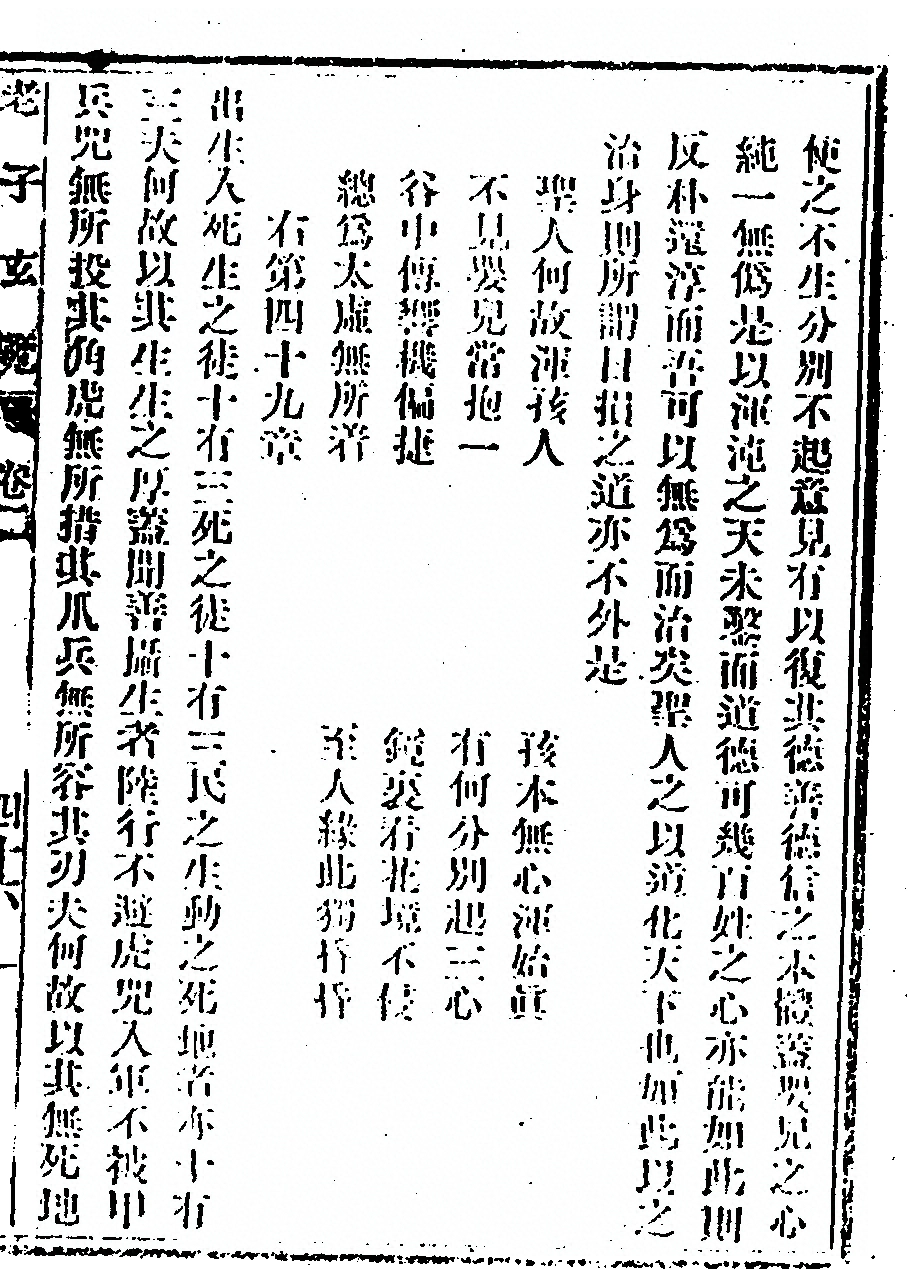 使之不生分別不起意見有以復其德善德信之本體蓋嬰兒之心
純一無僞是以渾沌之天未鑿而道德可幾百姓之心亦能如此則
反朴還淳而吾可以無爲而治矣聖人之以道化天下也如此以之
治身則所謂日損之道亦不外是
聖人何故渾孩人
孩本無心渾始眞
不見嬰兒常抱一
有何分別起三心
谷中傳響機偏捷
鏡裏看花境不侵
總爲太虛無所着
至人緣此獨昏昏
右第四十九章
出生入死生之徒十有三死之徒十有三民之生動之死地者亦十有
三夫何故以其生生之厚蓋聞善攝生者陸行不避虎兕入軍不被甲
兵兕無所投其角虎無所措其爪兵無所容其刃夫何故以其無死地
老子玄覽 卷二 四十六